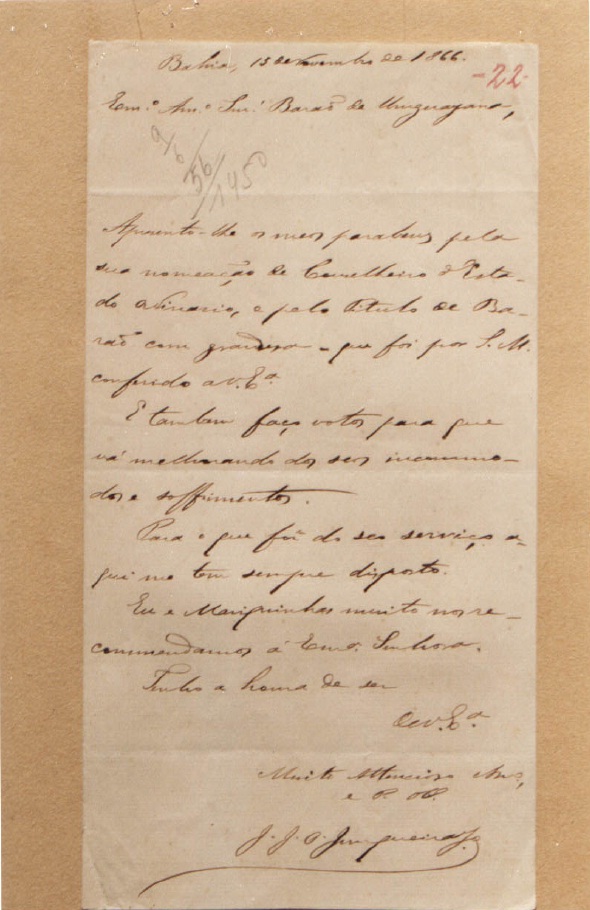 Bahia, 15 de Novembro de 1866.
-22-
Exm.º Am.º Snr.' Barão de Uruguayana,
9/6/56/1450
Apresento-lhe os meos parabens pela
sua nomeação de Conselheiro d'Esta-
do ordinario, e pelo titulo de Ba-
rão com grandesa - que foi por S. M.
conferido a V. Ex.ª
E tambem faço votos para que
vá melhorando dos seos incommo-
dos e soffrimentos.
Para o que for do seo serviço a-
qui me tem sempre disposto.
Eu e Mariquinhas muito nos re-
commendamos á Exm.ª Senhora.
Tenho a honra de ser
De V. Ex.ª
Muito Attencioso Am.º,
e
J. J. O. Junqueira Jr.